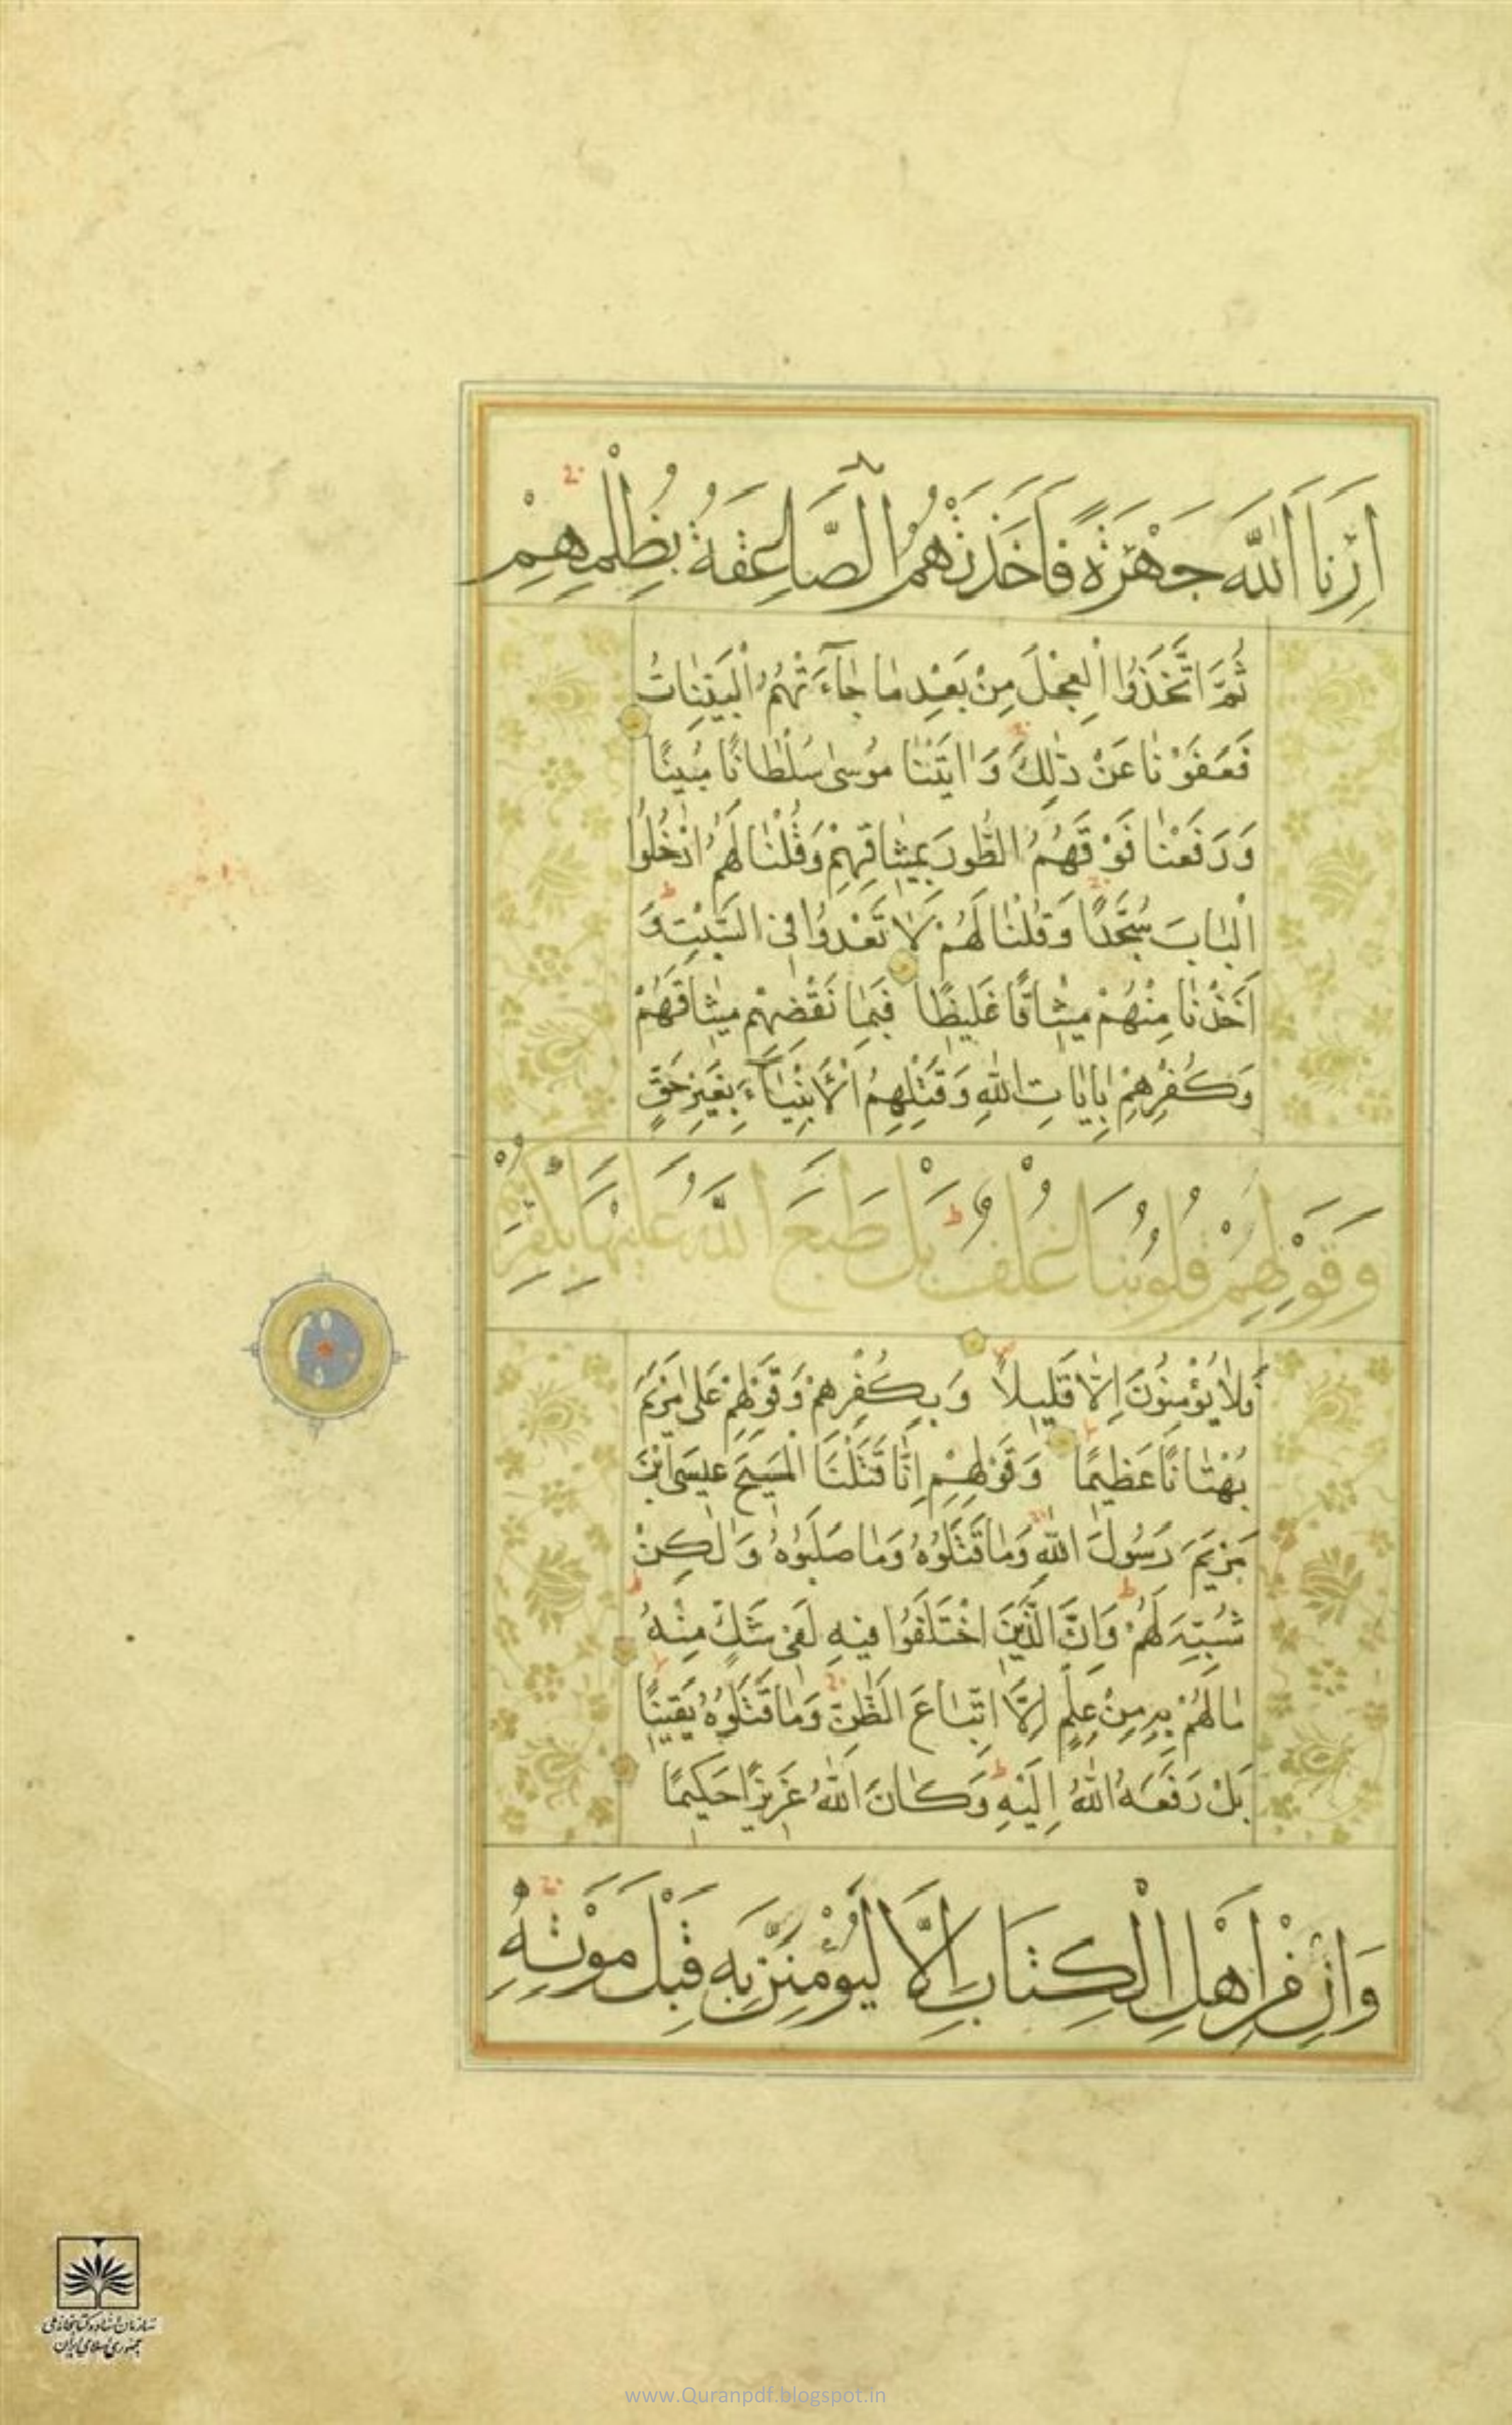 اَرِنَا اللّٰهَ جَهْرَةً فَاَخَذَتْهُمُ الصَّاعِقَةُ بِظُلْمِهِمْ
ثُمَّ اتَّخَذُوا الْعِجْلَ مِنْ بَعْدِ مٰا جٰٓاءَتْهُمُ الْبَيِّنٰاتُ
فَعَفَوْنٰا عَنْ ذٰلِكَ وَاٰتَيْنٰا مُوسىٰ سُلْطٰانًا مُبِينًا
وَرَفَعْنٰا فَوْقَهُمُ الطُّورَ بِمِيثٰاقِهِمْ وَقُلْنٰا لَهُمُ ادْخُلُوا
الْبٰابَ سُجَّدًا وَقُلْنٰا لَهُمْ لٰا تَعْدُوا فِي السَّبْتِ وَ
اَخَذْنٰا مِنْهُمْ مِيثٰاقًا غَلِيظًا فَبِمٰا نَقْضِهِمْ مِيثٰاقَهُمْ
وَكُفْرِهِمْ بِاٰيٰاتِ اللّٰهِ وَقَتْلِهِمُ الْاَنْبِيٰٓاءَ بِغَيْرِ حَقٍّ
وَقَوْلِهِمْ قُلُوبُنَا غُلْفٌ بَلْ طَبَعَ اللّٰهُ عَلَيْهَا بِكُفْرِهِمْ
فَلٰا يُؤْمِنُونَ اِلّٰا قَلِيلًا وَبِكُفْرِهِمْ وَقَوْلِهِمْ عَلىٰ مَرْيَمَ
بُهْتٰانًا عَظِيمًا وَقَوْلِهِمْ اِنّٰا قَتَلْنَا الْمَسِيحَ عِيسَى ابْنَ
مَرْيَمَ رَسُولَ اللّٰهِ وَمٰا قَتَلُوهُ وَمٰا صَلَبُوهُ وَلٰكِنْ
شُبِّهَ لَهُمْ وَاِنَّ الَّذِينَ اخْتَلَفُوا فِيهِ لَفِي شَكٍّ مِنْهُ
مٰا لَهُمْ بِهِ مِنْ عِلْمٍ اِلَّا اتِّبٰاعَ الظَّنِّ وَمٰا قَتَلُوهُ يَقِينًا
بَلْ رَفَعَهُ اللّٰهُ اِلَيْهِ وَكٰانَ اللّٰهُ عَزِيزًا حَكِيمًا
وَاِنْ مِنْ اَهْلِ الْكِتَابِ اِلَّا لَيُؤْمِنَنَّ بِهِ قَبْلَ مَوْتِهِ
سازمان اسناد و کتابخانه ملی
جمهوری اسلامی ایران
www.Quranpdf.blogspot.in